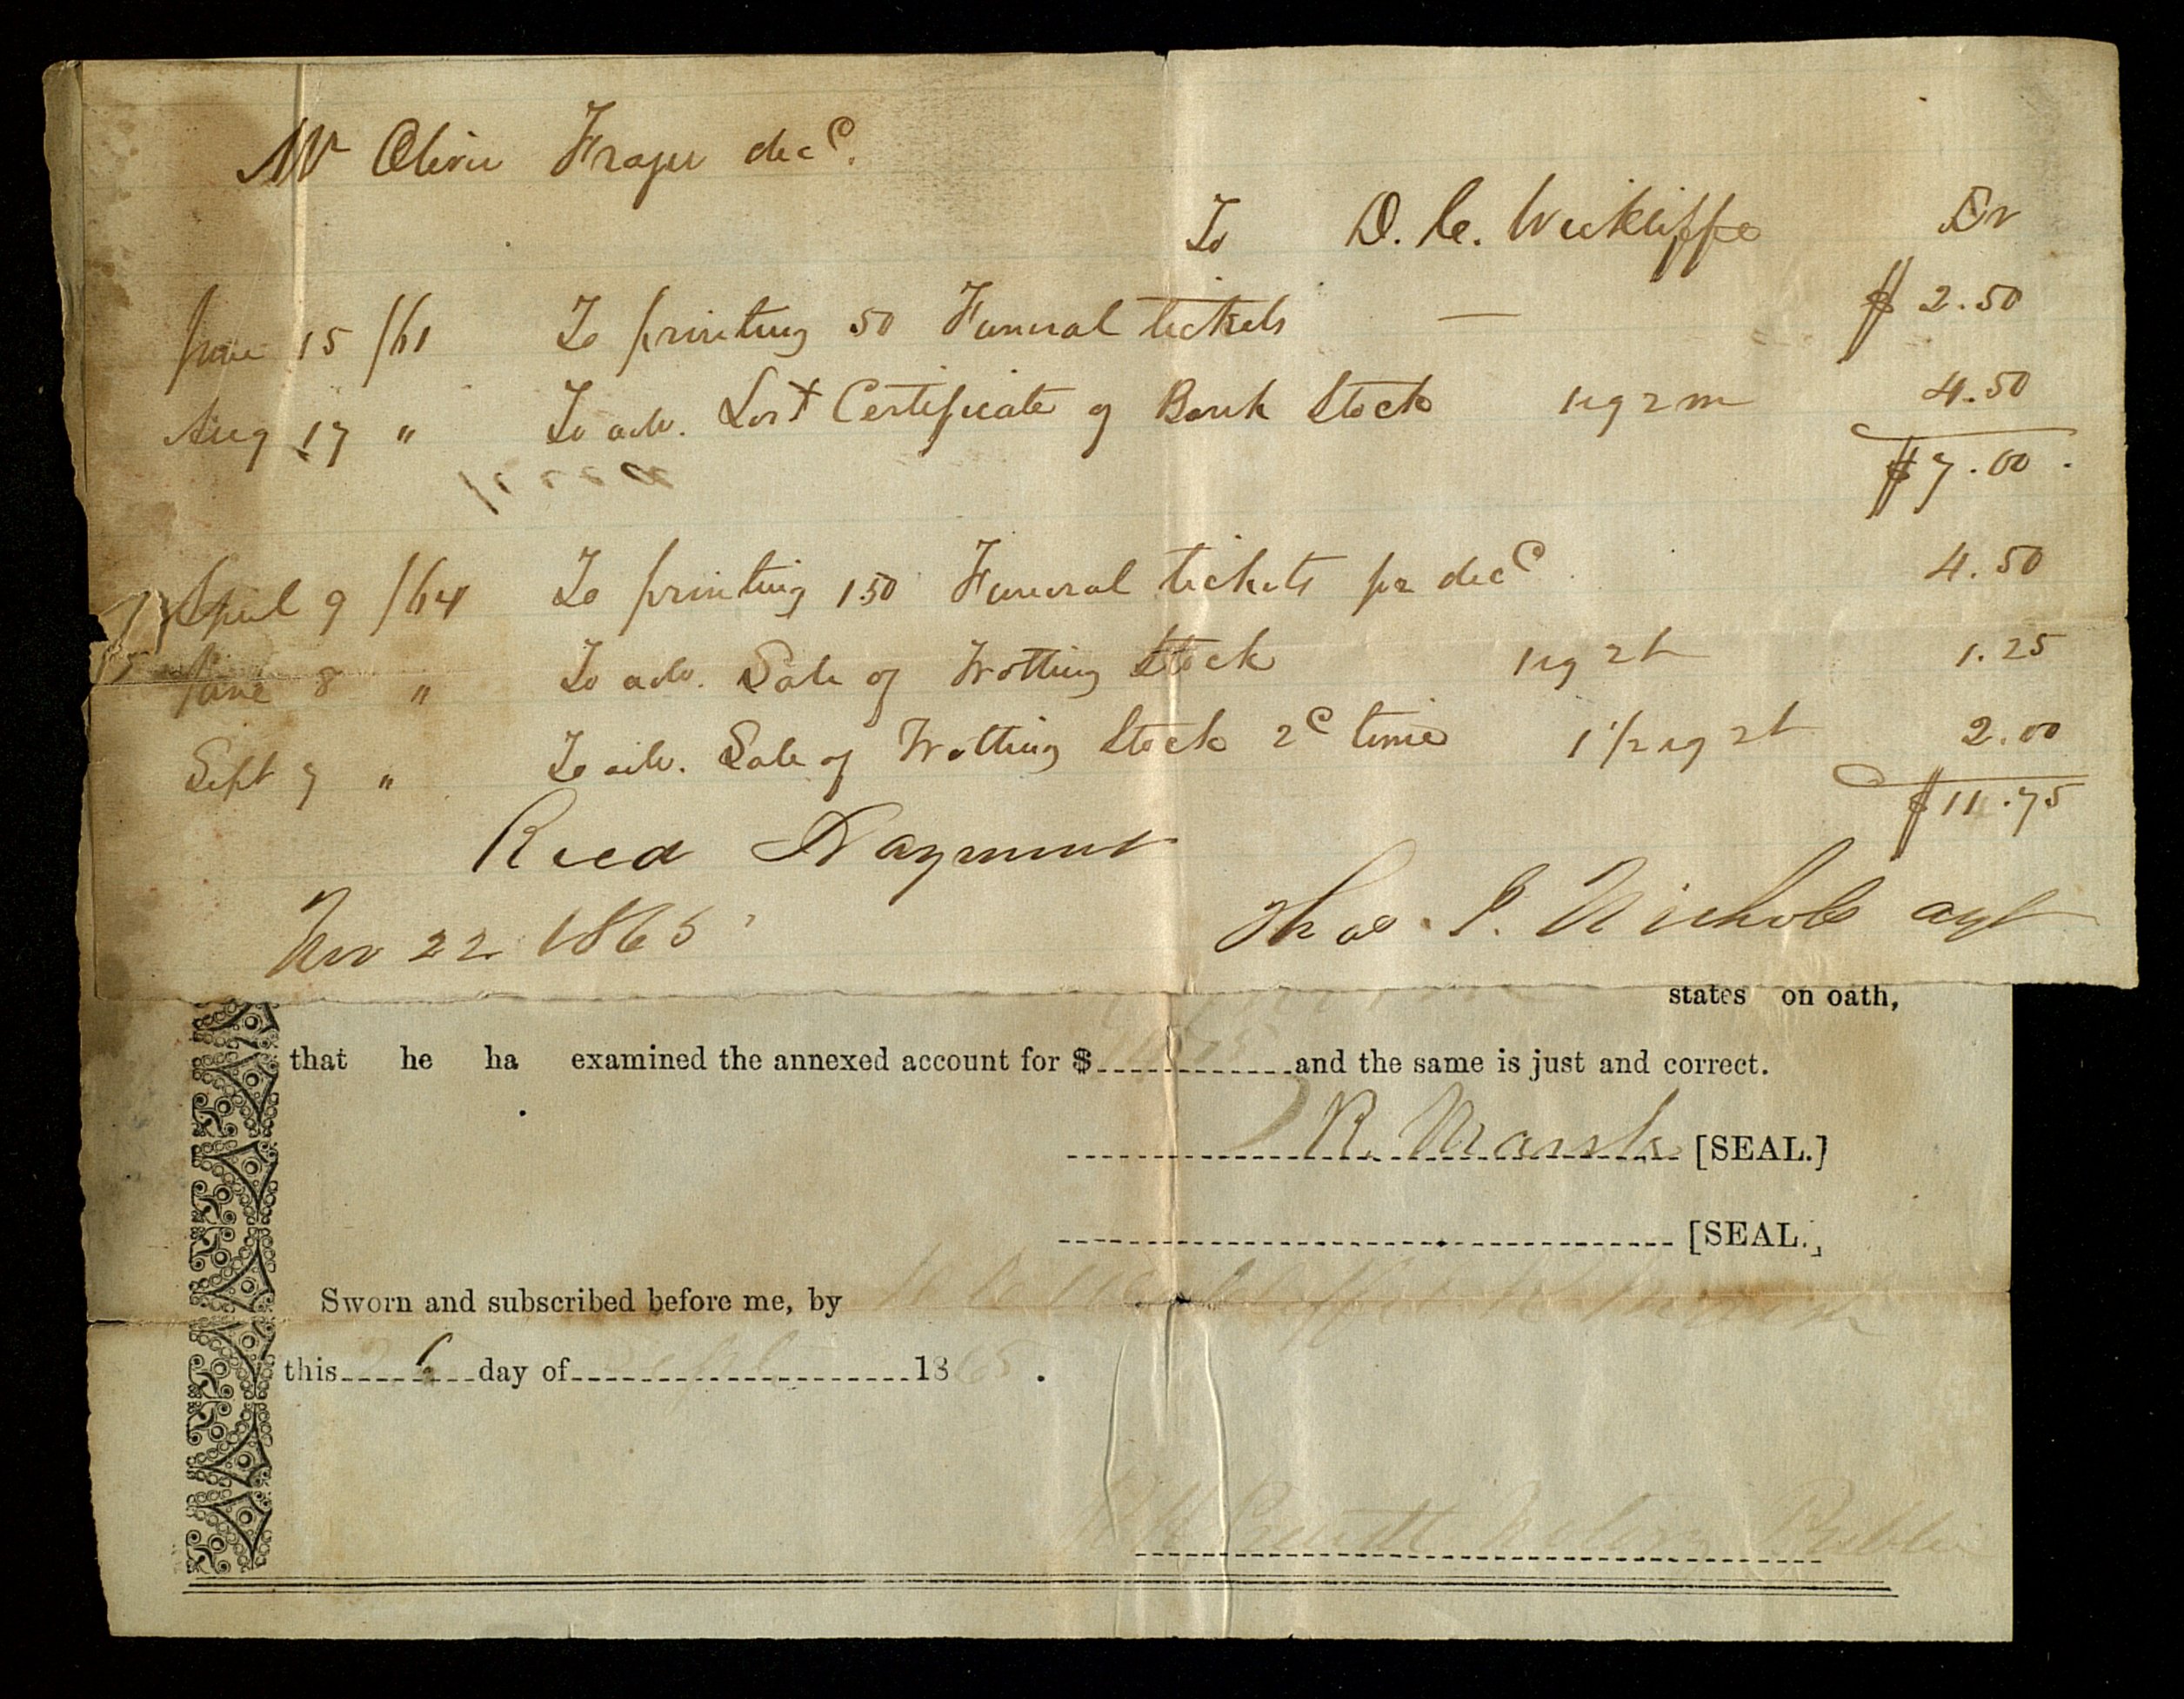 Mr Oliver Frazer decd.
To D. C. Wickliffe Dr
June 15 /61 To printing 50 Funeral tickets — $ 2.50
Aug 17 " To adv. Lost Certificate of Bank Stock 1 sq 2 m 4.50
$ 7.00.
April 9 /64 To printing 150 Funeral tickets for decd 4.50
June 8 " To adv. Sale of Trotting Stock 1 sq 2 t 1.25
Sept 7 " To adv. Sale of Trotting Stock 2d time 1 1/2 sq 2t 2.00
$ 14.75
Recd Payment
Nov 22 1865 Thos. J. Nichols agt
states on oath,
that he ha examined the annexed account for $ 14.75 and the same is just and correct.
R. Marsh [SEAL.]
[SEAL.]
Sworn and subscribed before me, by D. C. Wickliffe & R. Marsh
this day of Sept 1865.
Prewitt Notary Public